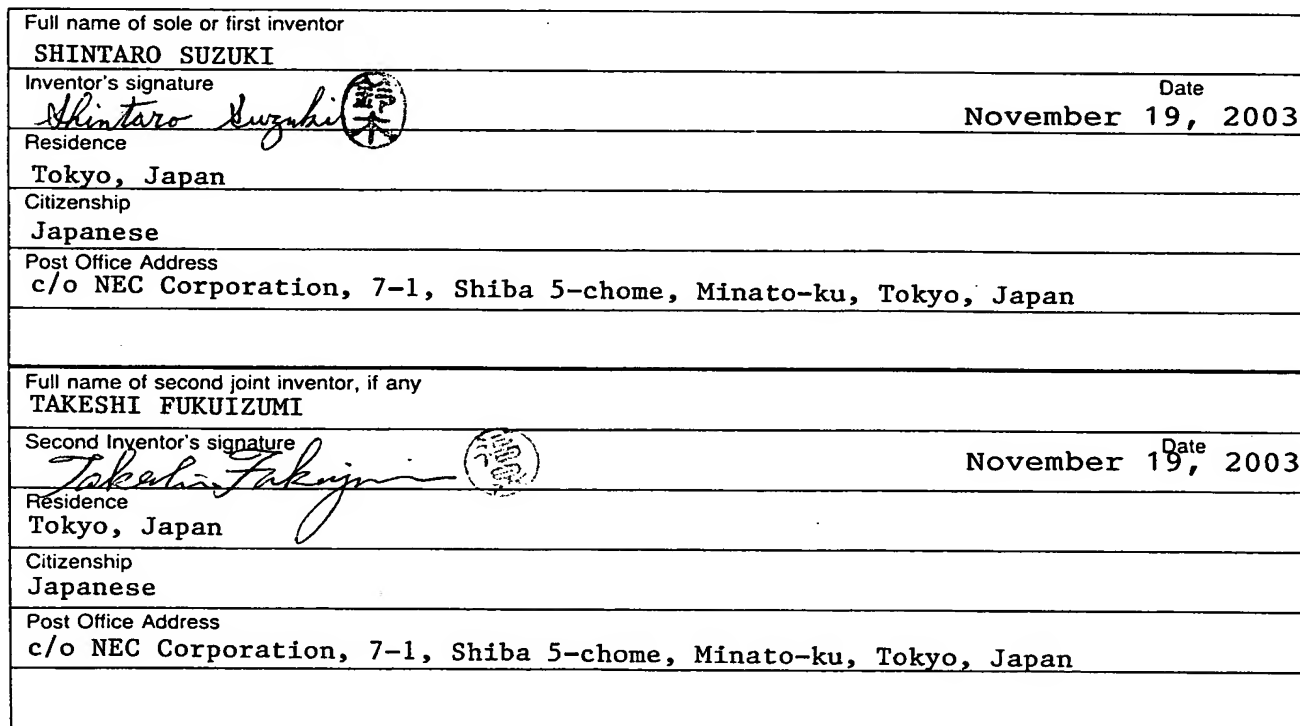 Full name of sole or first inventor
SHINTARO SUZUKI
Inventor's signature
Shintaro Suzuki 鈴木
Date
November 19, 2003
Residence
Tokyo, Japan
Citizenship
Japanese
Post Office Address
c/o NEC Corporation, 7-1, Shiba 5-chome, Minato-ku, Tokyo, Japan
Full name of second joint inventor, if any
TAKESHI FUKUIZUMI
Second Inventor's signature
Takeshi
Date
November 19, 2003
Residence
Tokyo, Japan
Citizenship
Japanese
Post Office Address
c/o NEC Corporation, 7-1, Shiba 5-chome, Minato-ku, Tokyo, Japan